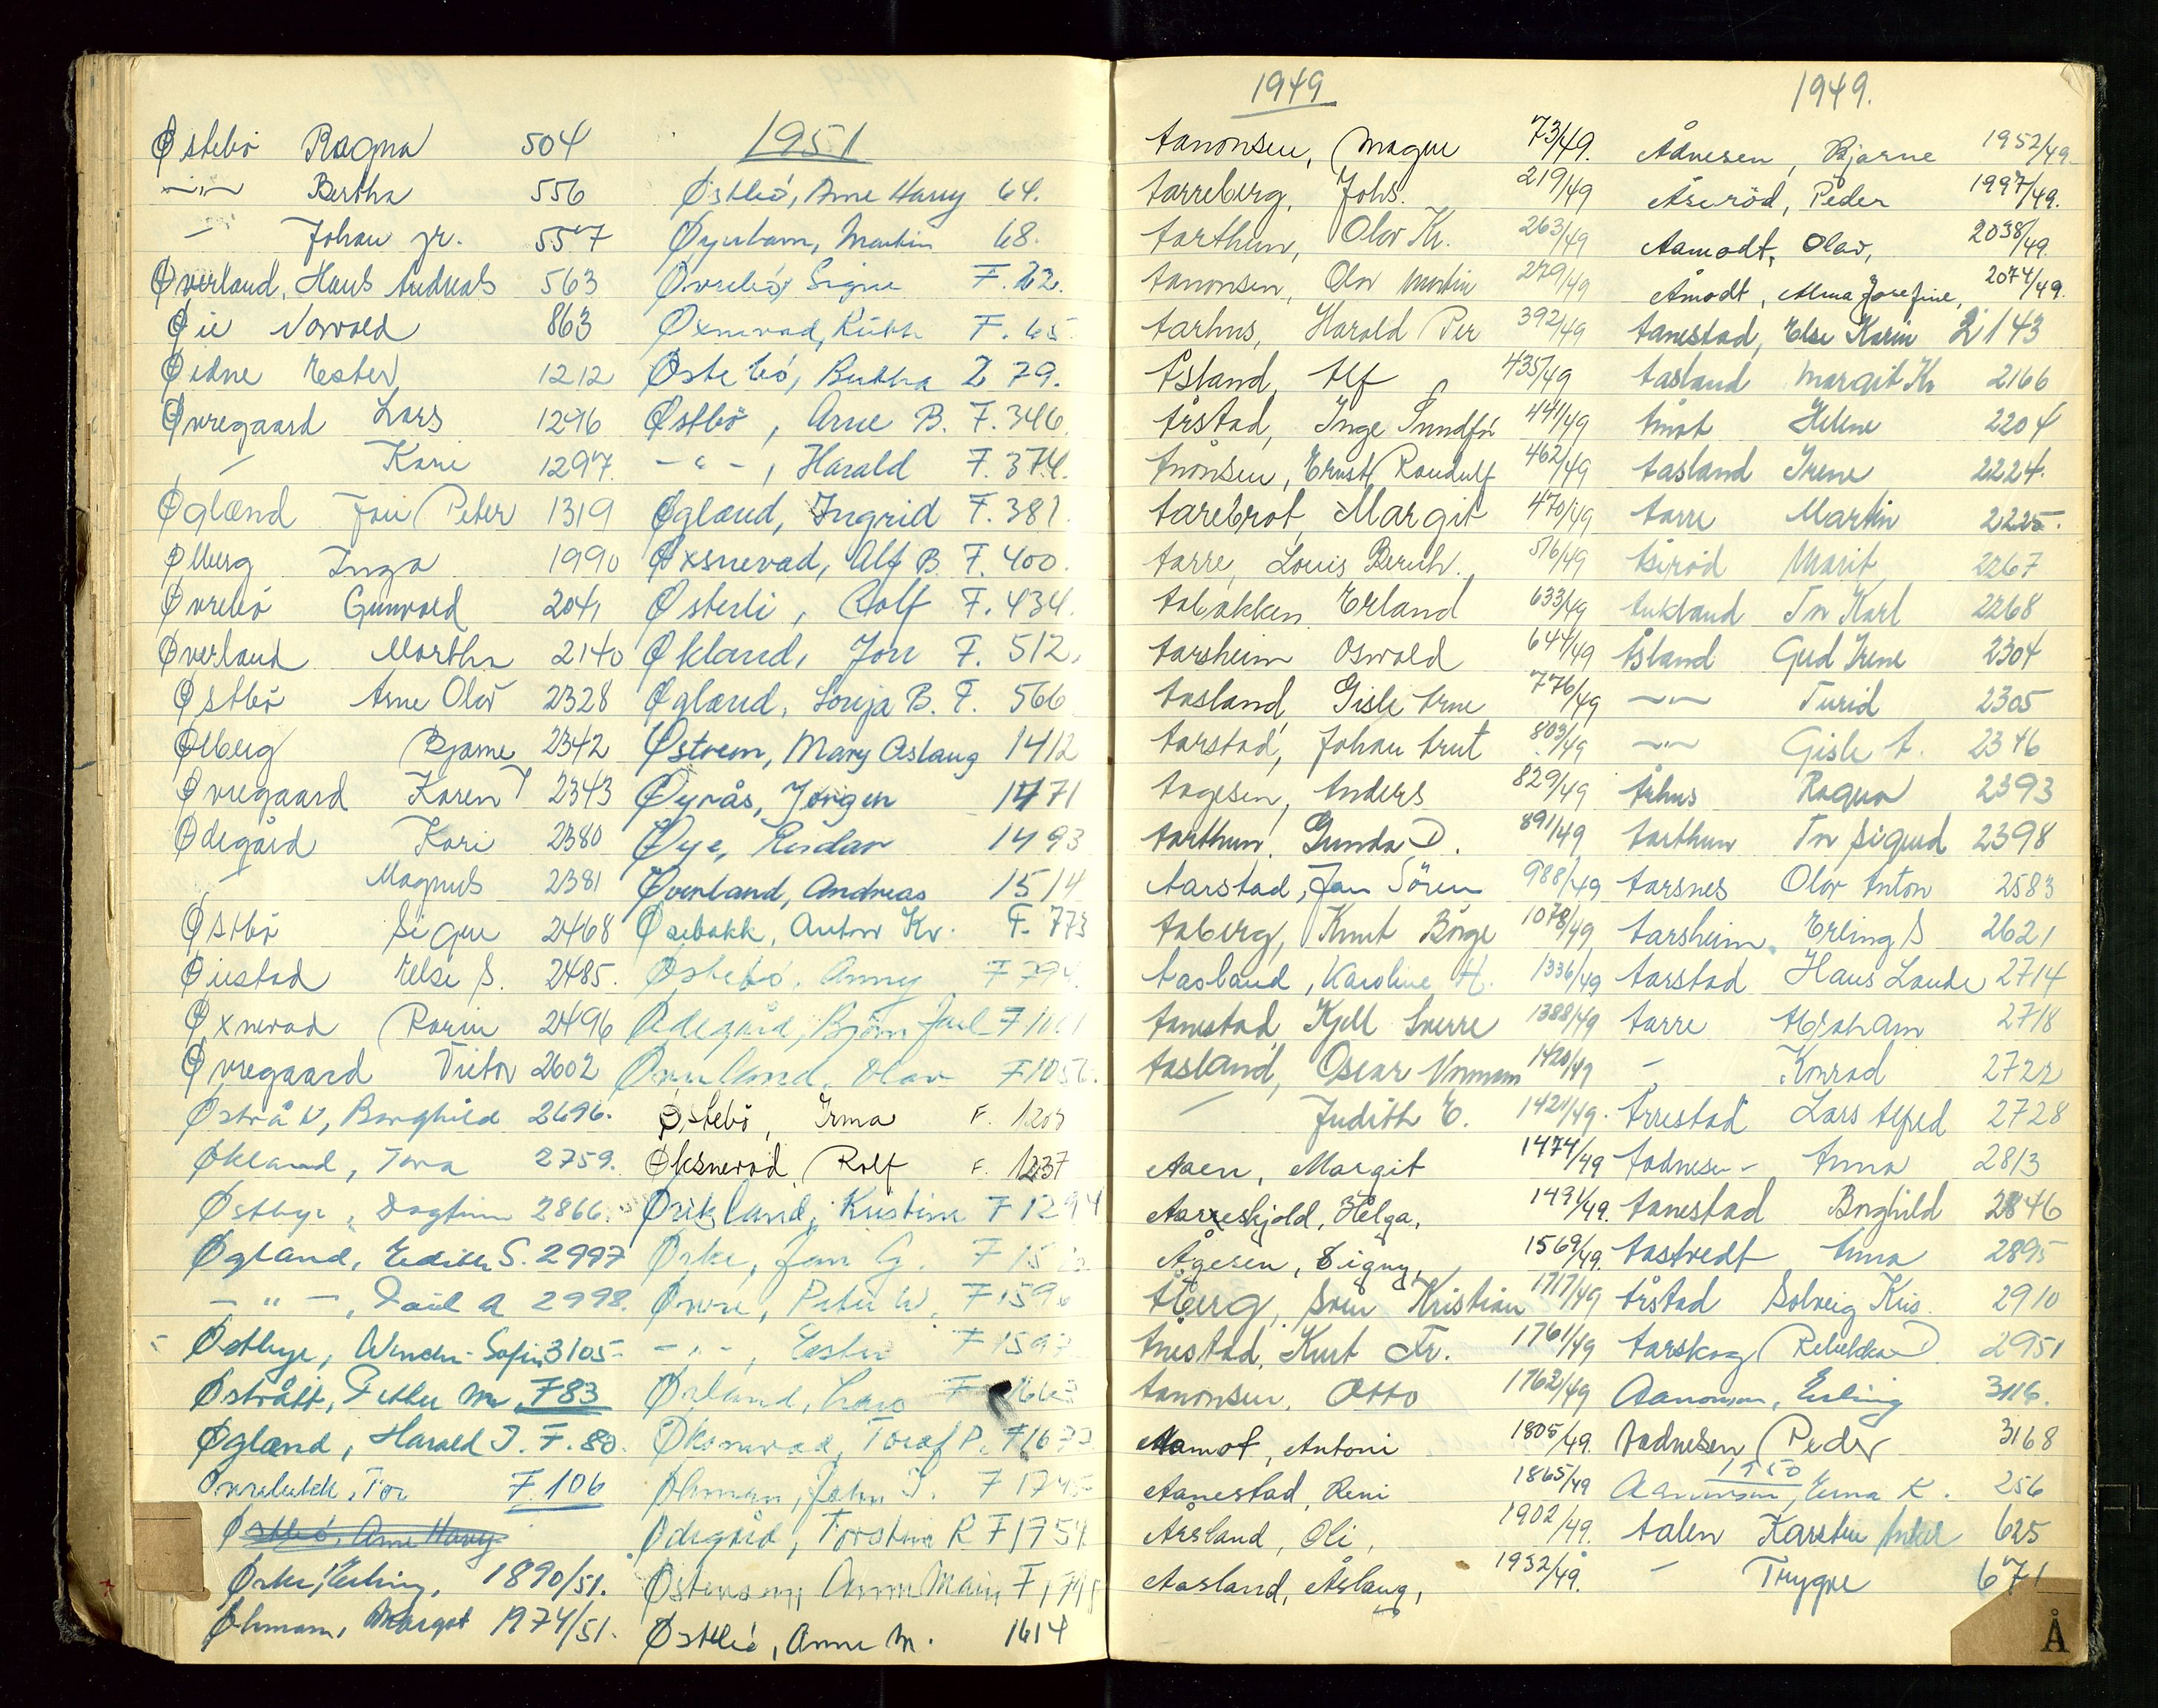 Østebö Ragna 504
-"- Bertha 556
- Johan jr. 557
Øverland, Hans Andreas 563
Øie Norvald 863
Øidne Ester 1212
Øvregaard Lars 1296
- Kari 1297.
Øglænd Jou Peter 1319
Ølberg Inga 1990
Øvrebö Gunvald 2041
Øverland Martha 2140
Østbö Arne Olav 2328
Ølberg Bjarne 2342
Øvregaard Karen J 2343
Ødegård Kari 2380
- Magnus 2381
Østbö Signe 2468
Øiestad Else S. 2485.
Øxnevad Karin 2496
Øvregaard Victor 2602
Østråt, Borghild 2696.
Økland, Tora 2759.
Østbye, Dagfinn 2866.
Øgland, Edith S. 2997
- " -, Pail A 2998.
Østbye, Sofie 3105
Østrått, Petter M. F 83
Øglænd, Harald J. F. 80.
Øvrebekk, Tor F. 106
Østbö, Arne Harry
Ørke, Erling, 1890/51.
Øhman, Margot 1974/51.
1951
Østbö, Arne Harry 64.
Øyulvam, Martin 68.
Øvrebö, Signe F. 22.
Øxnevad, Ruth F. 65
Østebö, Bertha 279.
Østbö, Arne B. F. 346.
- " -, Harald F. 374.
Øgland, Ingrid F. 381.
Øxsnevad, Alf B. F. 400.
Østerli, Rolf F. 434.
Økland, Jon F. 512.
Øglænd, Sonja B. F. 566
Østrem, Mary Aslaug 1412
Øyrås, Jörgen 1471
Øye, Reidar 1493
Øverland, Andreas 1514
Øsebakk, Anton Kr. F. 773
Østebö, Anny F 794
Ødegård, Björn Juel F
Øverland, Olav F 1056.
Østebö, Irma F. 1205
Øksnevad, Rolf F. 1237
Kristine F 1294
Ørke, Jan G. F 15
Øvre, Peter W. F 159
- " -, Ester F 1597
Ørland, Lars F 1663
Øksnevad, Toralf P. F 167
Øhman, John J. F 1745
Ødegård, Torstein R F 1754
Østensen, Anne Marie F 179
Østbö, Anne M. 1614
1949
Aanonsen, Magne 73/49.
Aarreberg, Johs. 219/49
Aarthun, Olav Kr. 263/49
Aanonsen, Olav Martin 279/49
Aarhus, Harald Per 392/49
Åsland, Alf 435/49
Årstad, Inge Sundför 441/49
Ånonsen, Ernst Randulf 462/49
Aarebrot, Margit 470/49
Aarre, Louis Bernh. 516/49
Aabakken Erland 633/49
Aarsheim Osvald 644/49
Aasland, Gisle Arne 776/49
Aarstad, Johan Arnt 803/49
Aagesen, Anders 829/49
Aarthun, Gunda D. 891/49
Aarstad, Jan Sören 988/49
Aaberg, Knut Börge 1078/49
Aasland, Karoline H. 1336/49
Aanestad, Kjell Sverre 1388/49
Aasland, Oscar Normann 1420/49
- Judith E. 1421/49.
Aaen, Margit 1474/49
Aarreskjold, Helga, 1491/49.
Ågesen, Signy, 1569/49.
Åberg, Svein Kristian 1717/49
Ånestad, Kurt Fr. 1761/49
Aanonsen, Otto 1762/49
Aamot, Antoni 1805/49.
Aanestad, Reni 1865/49
Arsland, Oli, 1902/49.
Aasland, Åslaug, 1932/49.
1949.
Ådnesen, Bjarne 1952/49
Åseröd, Peder 1997/49.
Aamodt, Olav, 2038/49.
Åmodt, Alma Josefine, 2074/49.
Aanestad, Else Karin 2143
Aasland Margit Kr 2166
Åmot Helene 2204
Aasland Irene 2224.
Aarre Martin 2225.
Åseröd Marit 2267
Aukland Tr Karl 2268
Åsland Gud Irene 2304
-"- Turid 2305
-"- Gisle A. 2346
Århus Ragna 2393
Aarthun Tr Sigurd 2398
Aarsnes Olav Anton 2583
Aarsheim, Erling S 2621
Aarstad Hans Laude 2714
Aarre Abraham 2718
- Konrad 2722
Årrestad Lars Alfred 2728
Aadnesen Anna 2813
Aanestad Borghild 2846
Aastvedt Anna 2895
Årstad Solveig Kris. 2910
Aarskog Rebekka D 2951
Aanonsen, Erling 3116.
Aadnesen Peder 3168
1950
Erna K. 256
Aalen Karsten Mikal 625
- Trygve 671
Å